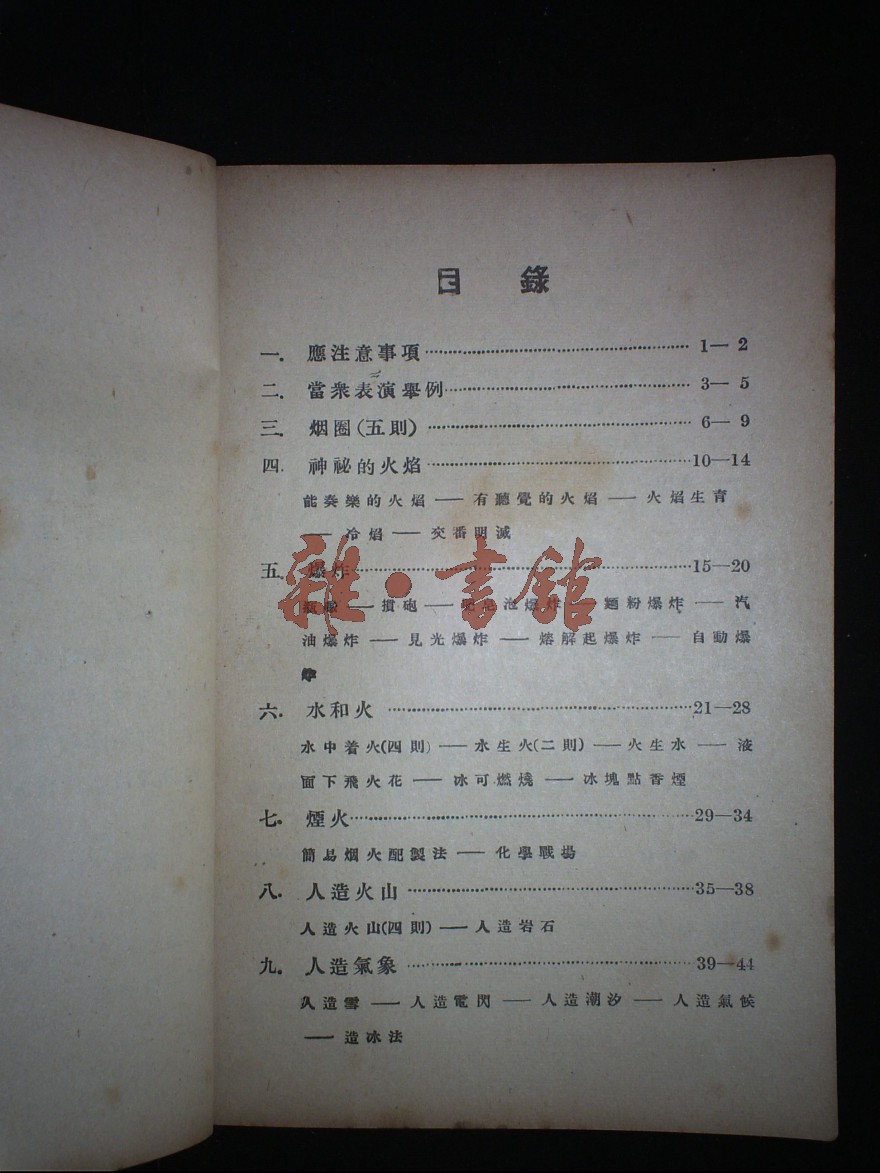 目錄
一. 應注意事項 1— 2
二. 當衆表演舉例 3— 5
三. 烟圈(五則) 6— 9
四. 神祕的火焰 10—14
能奏樂的火焰 —— 有聽覺的火焰 —— 火焰生育
—— 冷焰 —— 交番明滅
五. 爆炸 15—20
—— 摜砲 —— 爆炸 —— 麵粉爆炸 —— 汽
油爆炸 —— 見光爆炸 —— 熔解起爆炸 —— 自動爆
炸
六. 水和火 21—28
水中着火(四則) —— 水生火(二則) —— 火生水 —— 液
面下飛火花 —— 冰可燃燒 —— 冰塊點香煙
七. 煙火 29—34
簡易烟火配製法 —— 化學戰場
八. 人造火山 35—38
人造火山(四則) —— 人造岩石
九. 人造氣象 39—44
人造雪 —— 人造電閃 —— 人造潮汐 —— 人造氣候
—— 造冰法
雜·書館